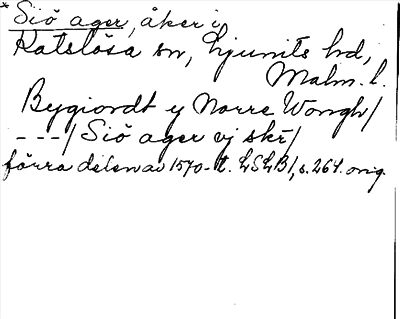 * Siö ager, åker i
Katslösa sn, Ljunits hd,
Malm. l.
Bygiordt y Norre Wongh/
---/ Siö ager vj skr/
förra delen av 1570-t. LSLB 1, s. 264. orig.